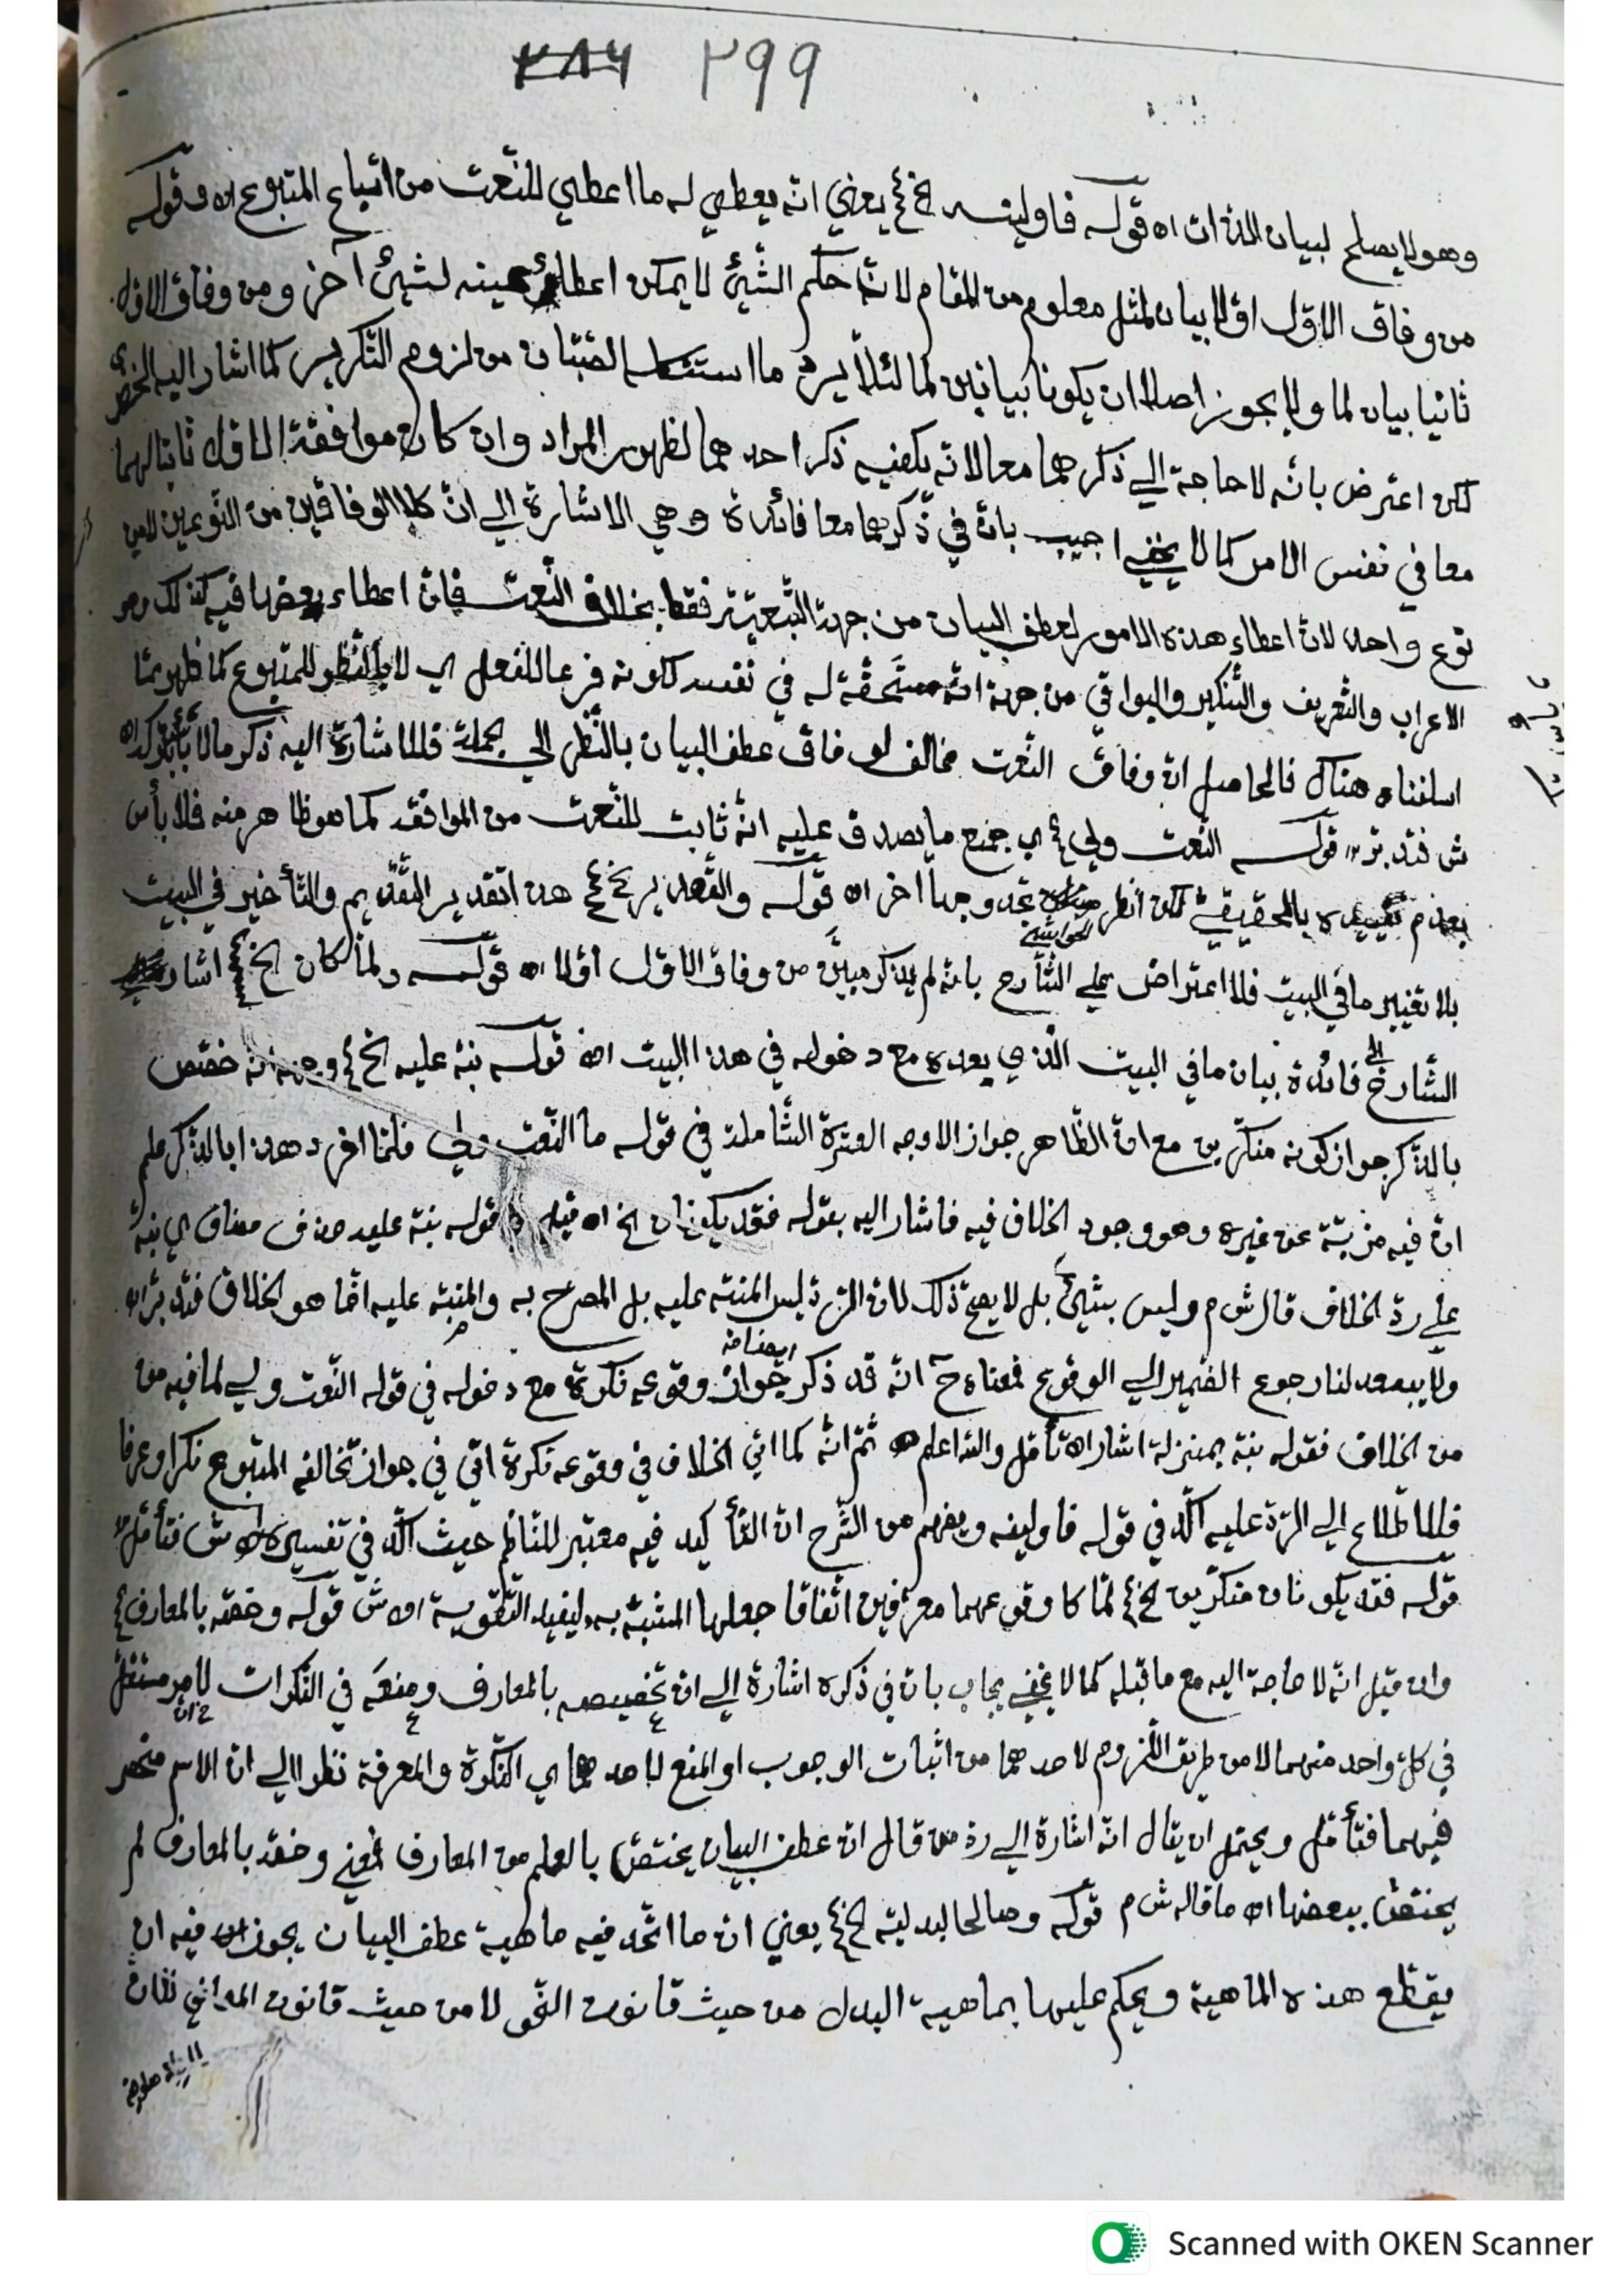 ٢٨٦ ٢٩٩
وهو لا يصلح لبيان الذات اه قوله فاولينه الخ ع يعني انه يعطي له ما اعطي للنعت من اتباع المتبوع اه وقوله
من وفاق الاول اولا بيان لمثل معلوم من المقام لان حكم الشئ لا يمكن اعطاؤ بعينه لشئ آخر ومن وفاق الاول
ثانيا بيان لما ولا يجوز اصلا ان يكونا بيانين لما لئلا يرد ما من لزوم التكرير كما اشار اليه الخضري
لكن اعترض بانه لا حاجة الي ذكرهما معا لانه يكفيه ذكر احدهما لظهور المراد وان كان موافقة الاول ثابتا لهما
معا في نفس الامر كما لا يخفي اجيب بان في ذكرهما معا فائدة وهي الاشارة الي ان كلا الوفاقين من النوعين لا من
نوع واحد لان اعطاء هذه الامور لعطف البيان من جهة التبعيّة فقط بخلاف النعت فان اعطاء بعضها فيه كذلك وهو
الاعراب والتعريف والتنكير والبواقي من جهة انه مستحقة له في نفسه لكونه فرعا للفعل اي لا بالنظر للمتبوع كما ظهر ممّا
اسلفناه هناك فالحاصل ان وفاق النعت مخالف لوفاق عطف البيان بالنظر الي الجملة فللاشارة اليه ذكر ما لا
ش فتدبّر قوله النعت ولي ع اي جميع ما يصدق عليه انه ثابت للنعت من الموافقة كما هو ظاهر منه فلا بأس
بعدم تقييده بالحقيقي لكن انظر الحواشي تجد وجها آخر اه قوله والتقدير الخ ع هذا تقدير التقديم والتأخير في البيت
بلا تغيير ما في البيت فلا اعتراض علي الشارح بانه لم يذكر مبيّن من وفاق الاول اولا اه قوله ولما كان الخ ع اشار
الشارح الي فائدة بيان ما في البيت الذي بعده مع دخوله في هذا البيت اه قوله نبّه عليه الخ ع وجهه انه خصّص
بالذكر جواز كونه منكّرين مع ان الظاهر جواز الاوجه العشرة الشاملة في قوله ما النعت ولي فلمّا افرد هذا بالذكر علم
ان فيه مزيّة عن غيره وهو وجود الخلاف فيه فاشار اليه بقوله فقد يكونان الخ اه قيل وقوله نبّه عليه حذف مضاف اي نبّه
علي ردّ الخلاف قال ش م وليس بشئ بل لا يصح ذلك لان الردّ ليس المنبّه عليه بل المصرح به والمنبّه عليه انّما هو الخلاف فتدبّر اه
ولا يبعد لنا رجوع الضمير الي الوقوع فمعناه ح انه قد ذكر جواز وقوعه نكرة ايضا مع دخوله في قوله النعت ولي لما فيه من
من الخلاف فقوله نبّه بمنزلة اشار اه تأمّل والله اعلم ثمّ انه كما اتي الخلاف في وقوعه نكرة اتي في جواز تخالفه المتبوع نكرا وعرفا
فللاطلاع الي الردّ عليه اكّد في قوله فاولينه ويفهم من الشرح ان التأكيد فيه معتبر للناظم حيث اكّد في تفسيره ش فتأمّل
قوله فقد يكونان منكّرين الخ ع لمّا كا وقوعهما معرّفين اتفاقا جعلها المشبّه به ليفيد التقوية اه ش قوله وخصّه بالمعارف ع
وان قيل انه لا حاجة اليه مع ما قبله كما لا يخفي يجاب بان في ذكره اشارة الي ان تخصيصه بالمعارف ومنعه في النكرات لامر مستقل
في كل واحد منهما لا من طريق اللزوم لاحدهما من اثبات الوجوب او المنع لاحدهما اي النكرة والمعرفة نظرا الي ان الاسم منحصر
فيهما فتأمّل ويحتمل ان يقال انه اشارة الي ردّ من قال ان عطف البيان يختصّ بالعلم من المعارف فمعني وخصّه بالمعارف لم
يختصّ ببعضها اه ما قاله ش م قوله وصالحا لبدليّة الخ ع يعني ان ما اتّحد فيه ماهية عطف البيان يجوز فيه ان
يقطع هذه الماهية ويحكم عليها بماهية البدل من حيث قانون النحو لا من حيث قانون المعاني فان
Scanned with OKEN Scanner